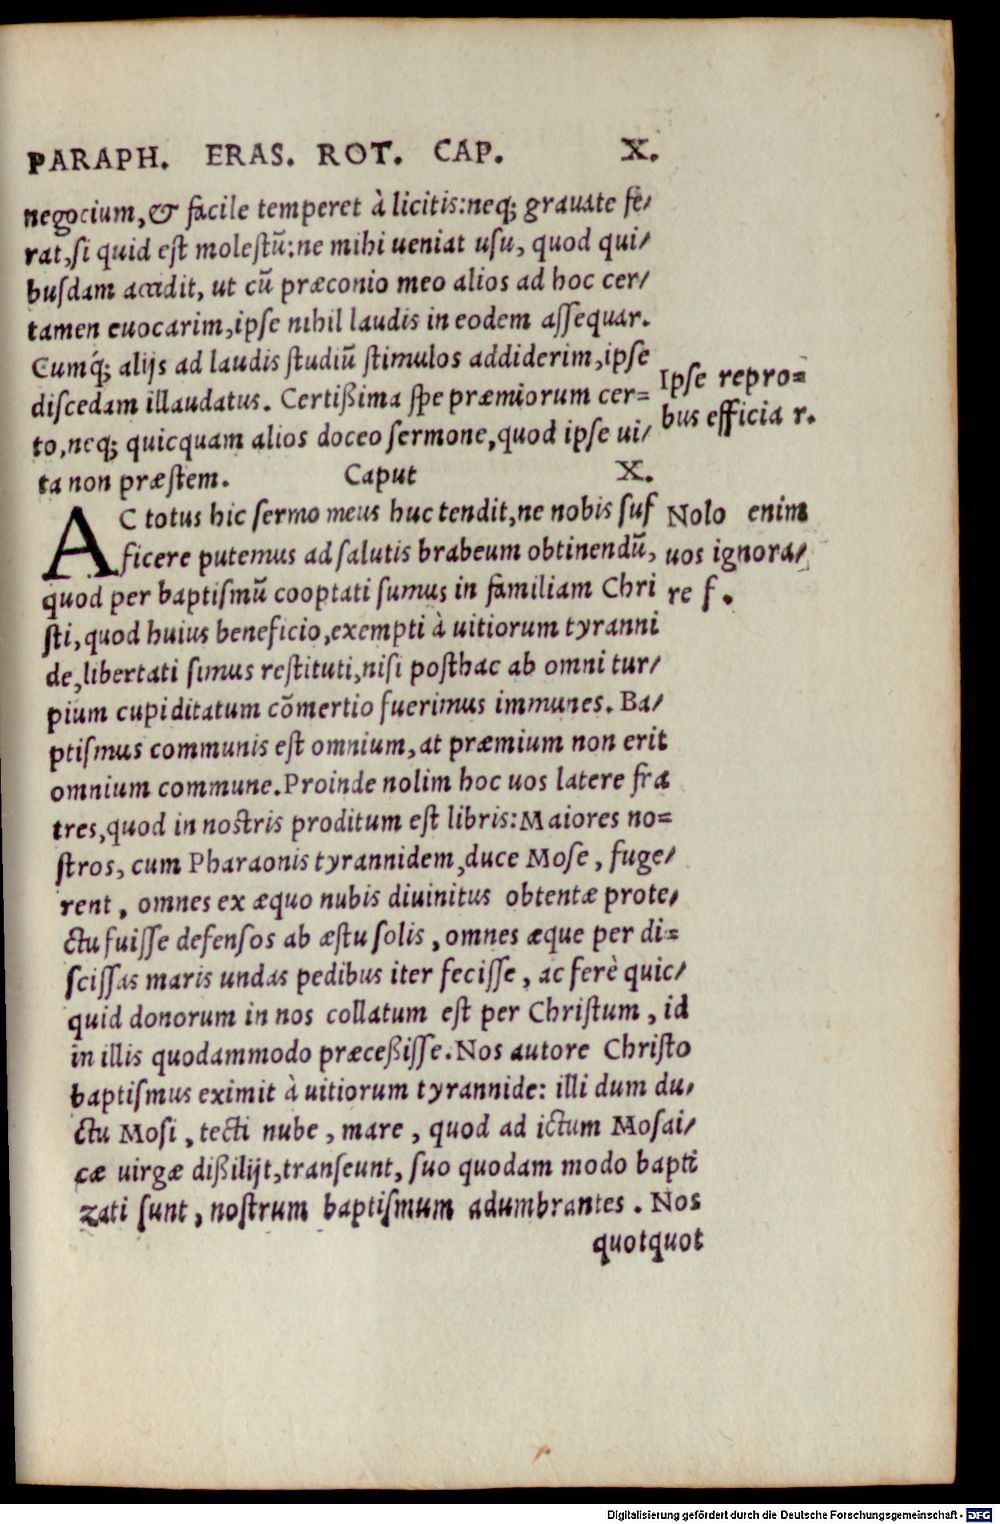 PARAPH. ERAS. ROT. CAP. X.
negocium, & facile temperet à licitis: neq; grauate fe/
rat, si quid est molestū: ne mihi ueniat usu, quod qui/
busdam accidit, ut cū præconio meo alios ad hoc cer/
tamen euocarim, ipse nihil laudis in eodem assequar.
Cumq́; alijs ad laudis studiū stimulos addiderim, ipse
discedam illaudatus. Certißima spe præmiorum cer=
to, neq; quicquam alios doceo sermone, quod ipse ui/
ta non præstem.
Ipse repro=
bus efficia r.
Caput X.
AC totus hic sermo meus huc tendit, ne nobis suf
ficere putemus ad salutis brabeum obtinendū,
quod per baptismū cooptati sumus in familiam Chri
sti, quod huius beneficio, exempti à uitiorum tyranni
de, libertati simus restituti, nisi posthac ab omni tur/
pium cupiditatum cōmertio fuerimus immunes. Ba/
ptismus communis est omnium, at præmium non erit
omnium commune. Proinde nolim hoc uos latere fra
tres, quod in nostris proditum est libris: Maiores no=
stros, cum Pharaonis tyrannidem, duce Mose, fuge/
rent, omnes ex æquo nubis diuinitus obtentæ prote/
ctu fuisse defensos ab æstu solis, omnes æque per di=
scissas maris undas pedibus iter fecisse, ac ferè quic/
quid donorum in nos collatum est per Christum, id
in illis quodammodo præceßisse. Nos autore Christo
baptismus eximit à uitiorum tyrannide: illi dum du/
ctu Mosi, tecti nube, mare, quod ad ictum Mosai/
cæ uirgæ dißilijt, transeunt, suo quodam modo bapti
zati sunt, nostrum baptismum adumbrantes. Nos
quotquot
Nolo enim
uos ignora/
re f.
Digitalisierung gefördert durch die Deutsche Forschungsgemeinschaft - DFG